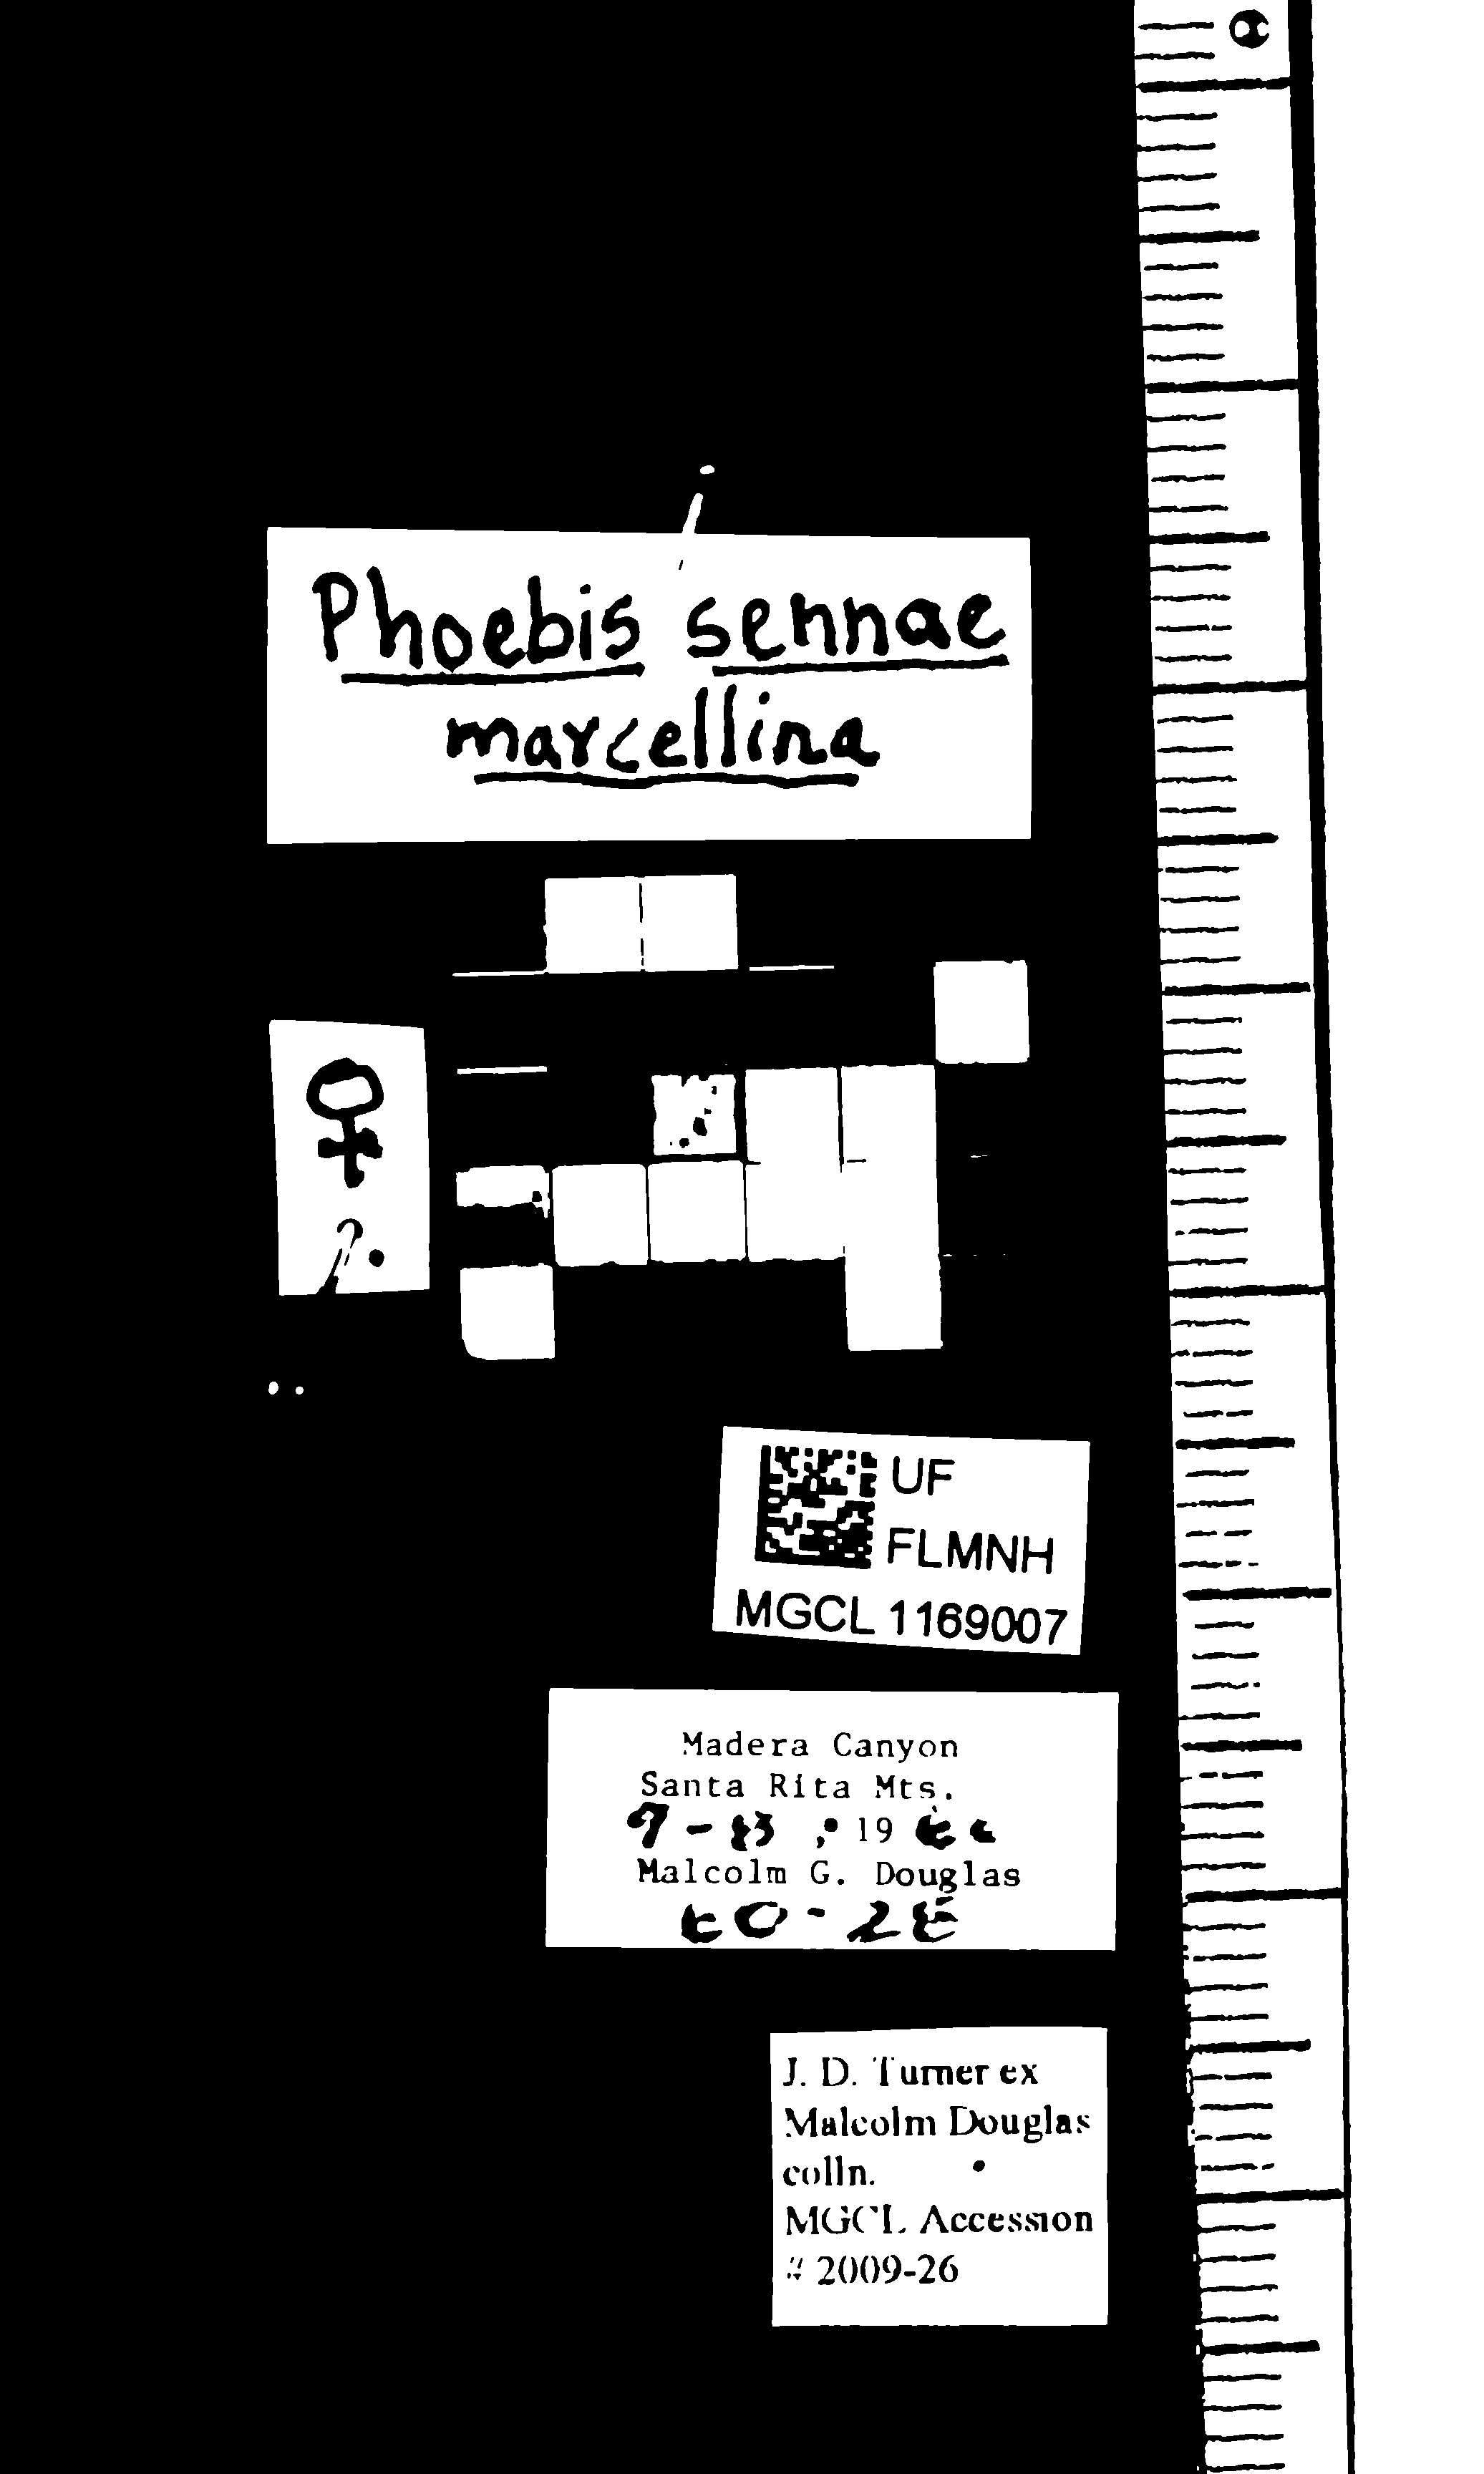 Phoebis sennae
marcellina
♀
?.
UF
FLMNH
MGCL 1169007
Madera Canyon
Santa Rita Mts.
, 19
Malcolm G. Douglas
J. D. Turner ex
Malcolm Douglas
colln.
MGCL Accession
# 2009-26